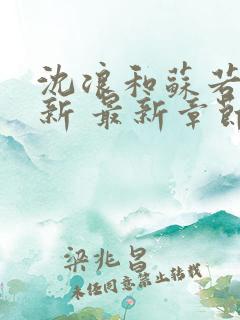 沈浪和蘇若
新 最新章節
梁兆昌
未经同意禁止转载